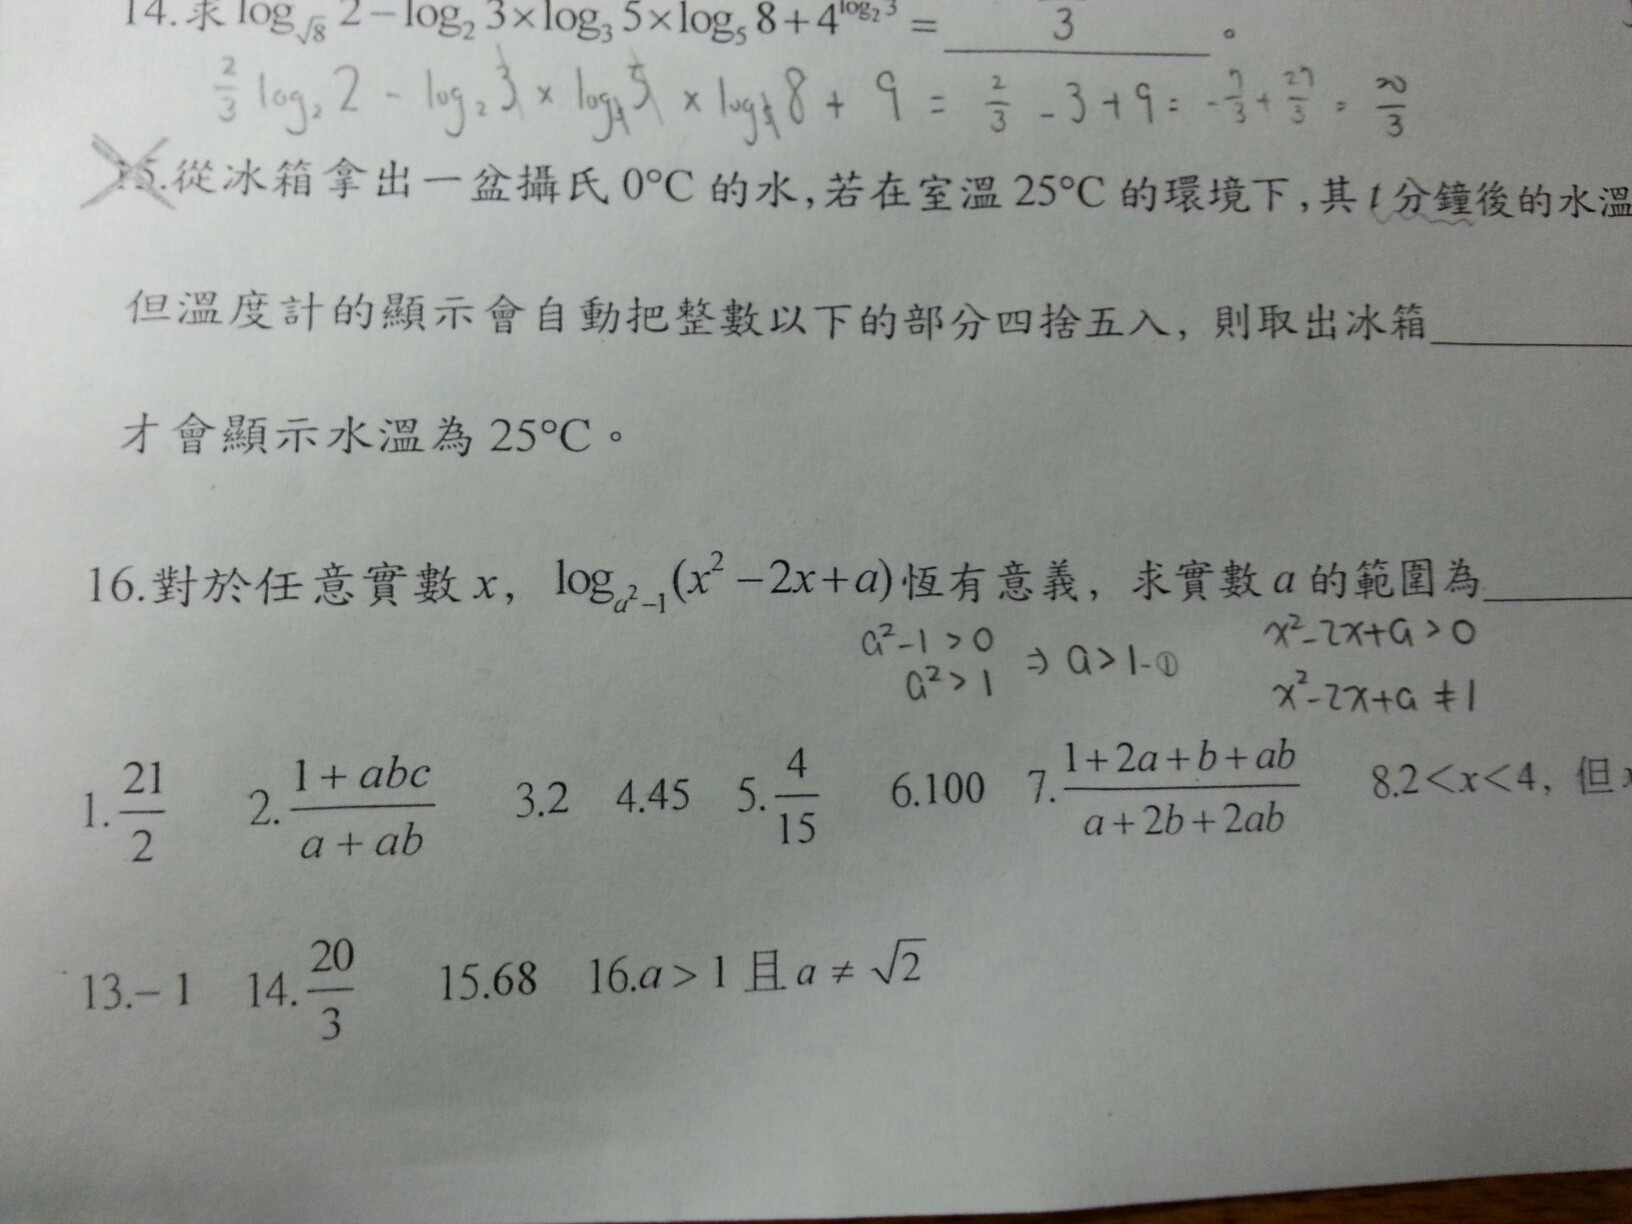 14.求 log_√8 2－log₂ 3×log₃ 5×log₅ 8＋4^(log₂ 3) = 3 。
2/3 log₂ 2 - log₂ 3 × log 5 × log 8 + 9 = 2/3 - 3 + 9 = -7/3 + 27/3 = 20/3
15.從冰箱拿出一盆攝氏 0°C 的水,若在室溫 25°C 的環境下,其 t 分鐘後的水溫
但溫度計的顯示會自動把整數以下的部分四捨五入，則取出冰箱
才會顯示水溫為 25°C。
16.對於任意實數 x， log_(a²−1) (x²－2x＋a)恆有意義，求實數 a 的範圍為
a²-1 > 0 ⇒ a > 1 - ① x²-2x+a > 0
a² > 1 x²-2x+a ≠ 1
1. 21/2 2. (1+abc)/(a+ab) 3.2 4.45 5. 4/15 6.100 7. (1+2a+b+ab)/(a+2b+2ab) 8.2<x<4，但 x
13.－1 14. 20/3 15.68 16.a＞1 且 a ≠ √2